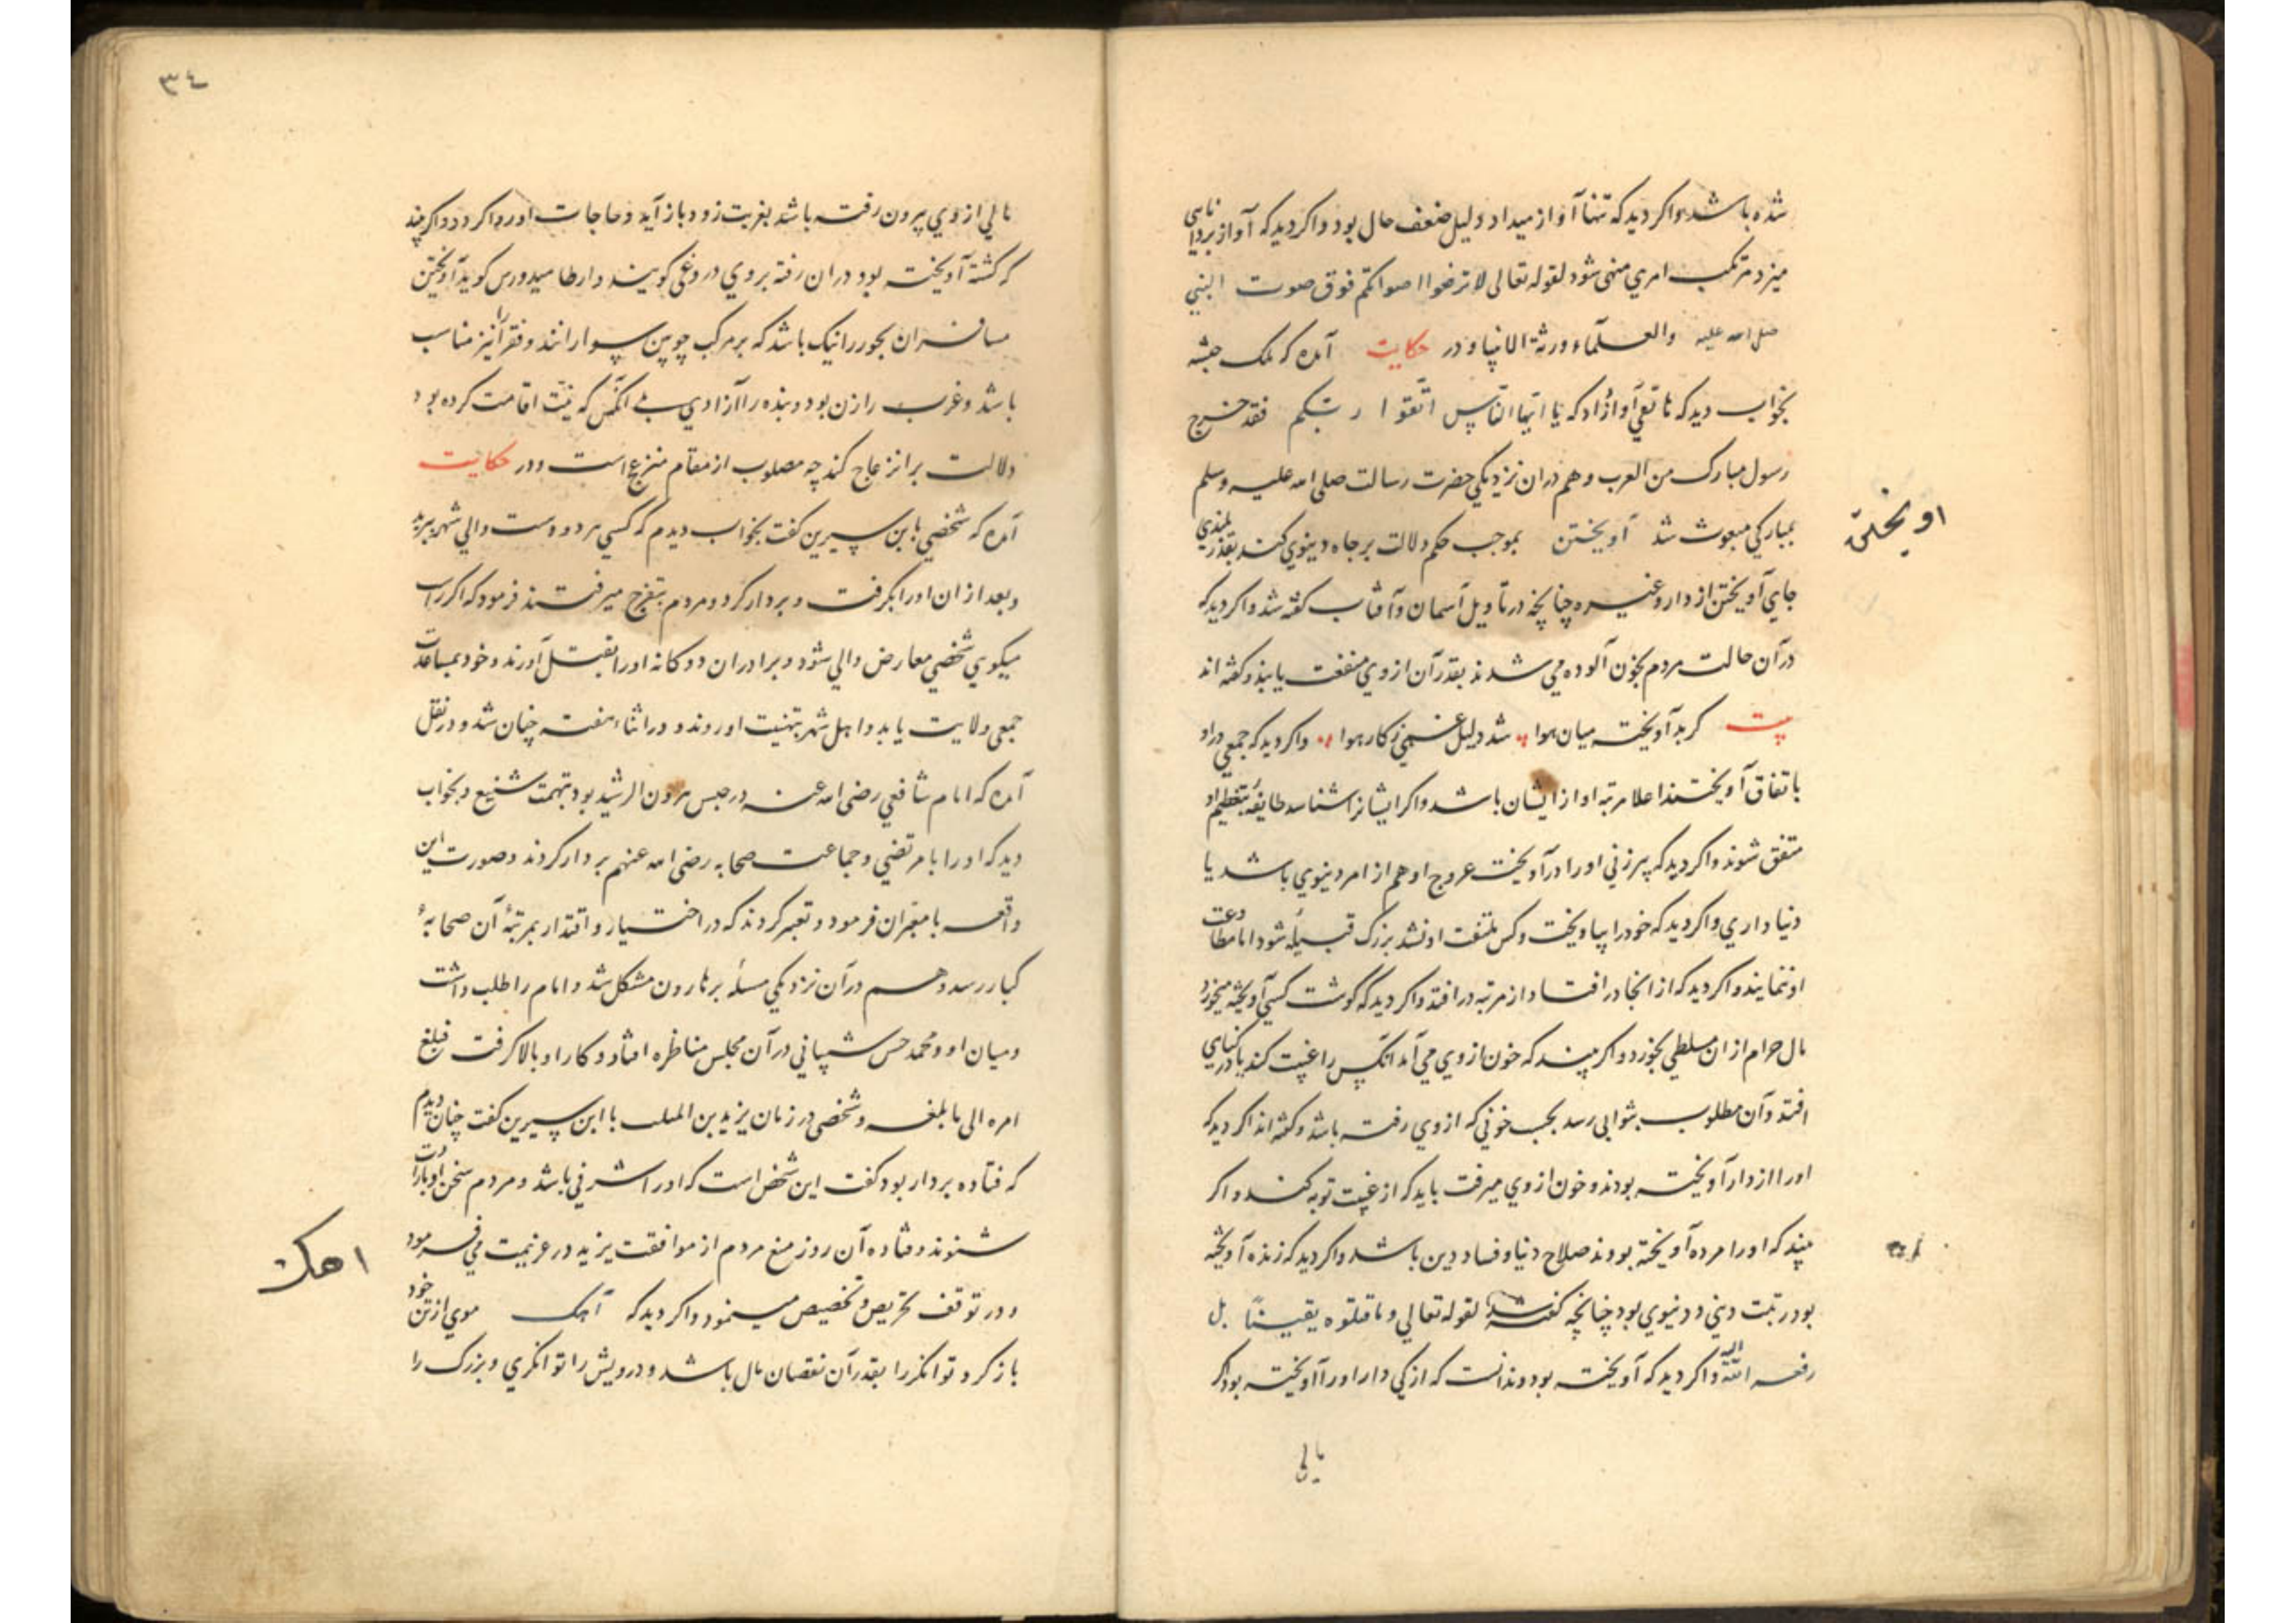 شده باشد واکر دید که تنها آواز میداد دلیل ضعف حال بود واکر دید که آواز برداناسی
میزد مرتکب امری منهی شود لقوله تعالی لا ترفعوا اصواتکم فوق صوت النبی
صلی الله علیه والعلمآء ورثة الانبیا ودر حکایت آمده که ملک حبشه
بخواب دید که هاتفی آواز داد که یا ایها الناس اتقوا ربکم فقد خرج
رسول مبارک من العرب وهم دران نزدیکی حضرت رسالت صلی الله علیه وسلم
بمبارکی مبعوث شد آویختن بموجب حکم دلالت بر جاه دنیوی کند بقدر بلندی
اویختن
جای آویختن از دار وغیره چنانچه در تأویل آسمان وآفتاب کفته شد واکر دید که
درآن حالت مردم بخون آلوده می شدند بقدر آن ازوی منفعت یابند وکفته اند
بیت کر بد آویخته میان هوا شد دلیل غنی ز کار هوا واکر دید که جمعی در او
باتفاق آویختند اعلا مرتبه او از ایشان باشد واکر ایشانرا شناسد طایفه بتعظیم او
متفق شوند واکر دید که پیرزنی اورا درآویخت عروج او هم از امر دنیوی باشد یا
دنیاداری واکر دید که خودرا بیاویخت وکس ملتفت او نشد بزرک قبیله شود اما مطاوعت
او ننمایند واکر دید که از انجا درافتاد از مرتبه درافتد واکر دید که کوشت کسی آویخته میخورد
مال حرام ازان مسلطی بخورد واکر بیند که خون ازوی می آمد انکس را غیبت کند یا در کناهی
افتد وآن مطلوب بثوابی رسد بحسب خونی که ازوی رفته باشد وکفته اند اکر دید که
اورا از دار آویخته بودند وخون ازوی میرفت باید که از غیبت توبه کند واکر
بیند که اورا مرده آویخته بودند صلاح دنیا وفساد دین باشد واکر دید که زنده آویخته
بود رتبت دینی ودنیوی بود چنانچه کفته شد لقوله تعالی وما قتلوه یقینًا بل
رفعه الله الیه واکر دید که آویخته بود وندانست که از کی دار اورا آویخته بود اکر
مالی
٣٤
مالی ازوی بیرون رفته باشد بغربت زود باز آید وحاجات اورا روا کردد واکر بیند
که کشته آویخته بود دران رفته بروی دروغی کویند وارطامیدورس کوید آویختن
مسافران بحررا نیک باشد که بر مرکب چوبین سوارانند وفقرآرا نیز مناسب
باشد وعزب را زن بود وبنده را آزادی بی انکس که نیت اقامت کرده بود
دلالت بر انزعاج کند چه مصلوب از مقام منزعج است ودر حکایت
آمده که شخصی بابن سیرین کفت بخواب دیدم که کسی هر دو دست والی شهر ببرید
وبعد ازان اورا بکرفت وبر دار کرد ومردم بتفرج میرفتند فرمود که اکر راست
میکوی شخصی معارض والی شود وبرادران دوکانه اورا بقتل آورند وخود بمساعدت
جمعی ولایت یابد واهل شهر بتهنیت او روند ودر اثناء هفته چنان شد ودر نقل
آمده که امام شافعی رضی الله عنه در حبس هرون الرشید بود بتهمت شنیع وبخواب
دید که اورا با مرتضی وجماعت صحابه رضی الله عنهم بر دار کردند وصورت این
واقعه با معبران فرمود وتعبیر کردند که در اختیار واقتدار بمرتبهٔ آن صحابهٔ
کبار رسد وهم درآن نزدیکی مسله بر هارون مشکل شد وامام را طلب داشت
ومیان او ومحمد حسن شیبانی درآن مجلس مناظره افتاد وکار او بالا کرفت فبلغ
امره الی ما بلغه وشخصی در زمان یزید بن المهلب با ابن سیرین کفت چنان دیدم
که قتاده بردار بود کفت این شخص است که اورا اشرفی باشد ومردم سخن اورا
شنوند وقتاده آن روز منع مردم از موافقت یزید در عزیمت می فرمود
ودر توقف تحریص وتخصیص مینمود واکر دید که آهک موی از تن خود
اهک
باز کرد توانکررا بقدر آن نقصان مال باشد ودرویش را توانکری وبزرک را